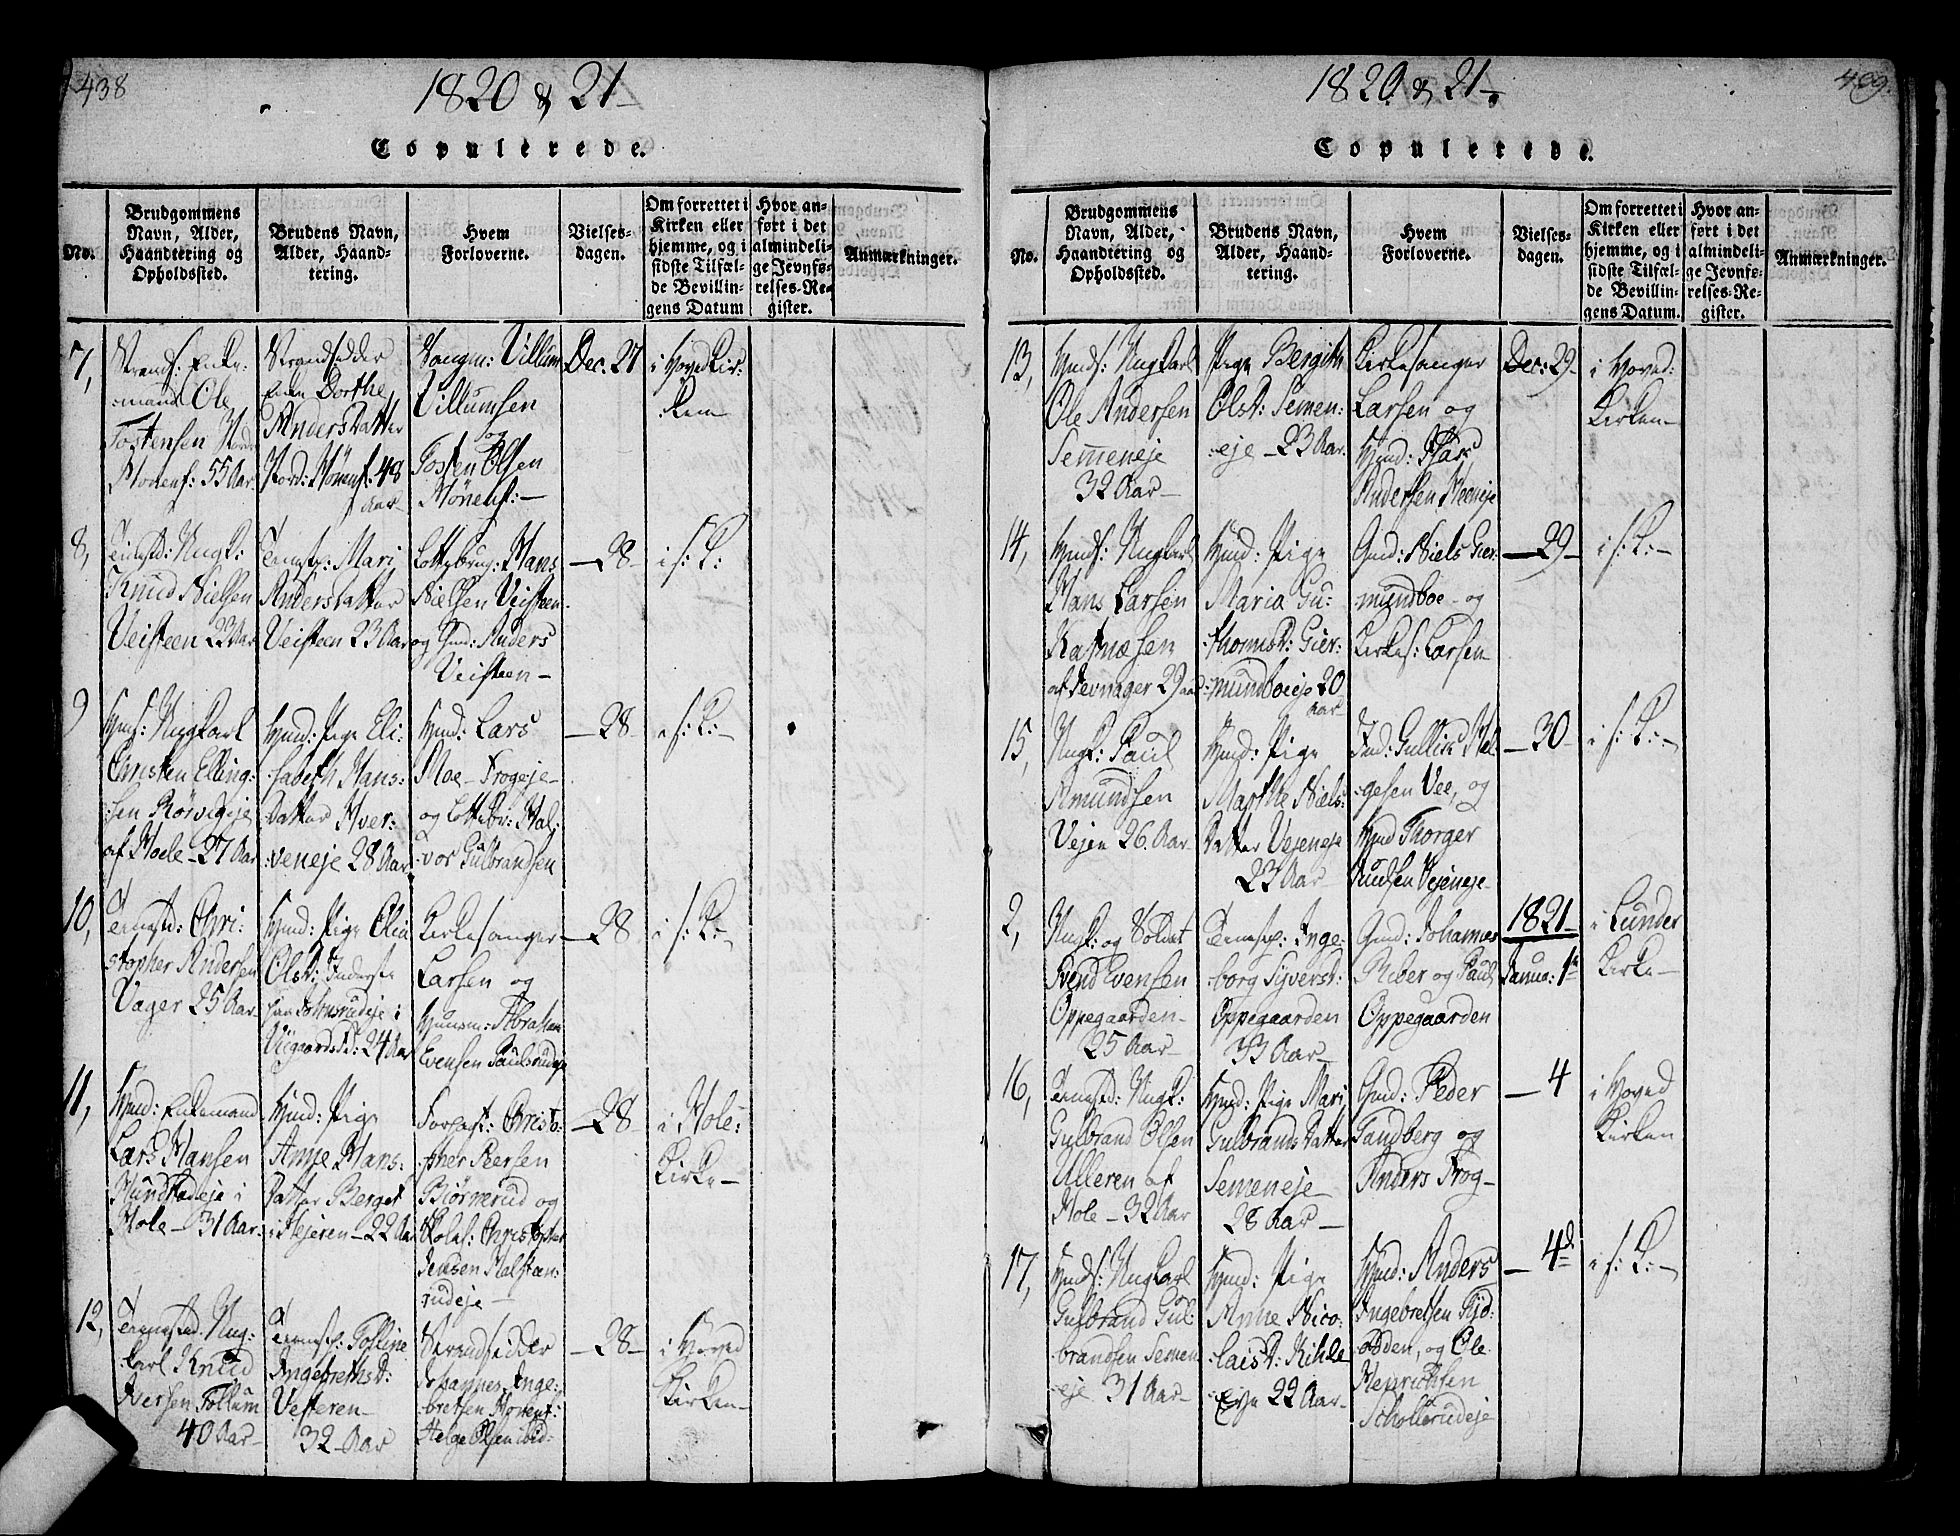 438
1820 & 21
Copulerede.
No.
Brudgommens
Navn, Alder,
Haandtering og
Opholdssted.
Brudens Navn,
Alder, Haand-
tering.
Hvem
Forloverne.
Vielses-
dagen.
Om forrettet i
Kirken eller
hjemme, og i
sidste Tilfæl-
de Bevillin-
gens Datum
Hvor an-
ført i det
almindeli-
ge Jevnfø-
relses-Re-
gister.
Anmærkninger.
7,
Strands: Enke-
mand Ole
Tostensen
Hønenf: 55 Aar
Strandsidder
Enke Dorthe
Anders Datter
Nord: Hönenf: 48
Aar
Villum
Villumsen
og
Tosten Olsen
Hönenf:
Dec. 27
i Hoved Kir:
ken
8,
Tienestd: Ungk:
Knud Nielsen
Veisteen 23 Aar
Tienestp: Mari
Anders Datter
Veisteen 23 Aar
Lottsbrug: Hans
Nielsen Veisteen
og Gmd: Anders
Veisteen
28
i s: K:
9
Hmf: Ungkarl
Christen Elling:
sen Rörvigeje
af Hole 27 Aar
Hmd: Pige Eli:
sabeth Hans:
Datter Hver:
veneje 28 Aar
Hmd: Lars
Moe Frogeje
og Lottsbr: Hal:
vor Gulbrandsen
28
i s: K:
10,
Tienestd: Chri:
stopher Andersen
Vager 25 Aar
Hmd: Pige Elia
Olsd: Inderste
i
24 Aar
Kirkesanger
Larsen og
Huusm: Abraham
Evensen Paulsrudeje
28
i s: K:
11,
Hmd: Enkemand
Lars Hansen
Mundstedeje i
Hole 31 Aar
Hmd: Pige
Anne Hans:
Datter Berget
i Stejeren 22 Aar
Forsest: Christo:
pher Peersen
Biørnerud og
Skolel: Christopher
Jensen Halsteen:
rudeje
28
i Hole:
Kirke
12,
Tienestd. Ung:
karl Knud
Iversen Follum
40 Aar
Tienestp: Tolline
Ingebrethsd:
Vesteren
32 Aar
Strandsidder
Johannes Inge:
bretsen Hønenf:
Helge Olsen ibid:
28
i Hoved
Kirken
1820 & 21
409.
Copulerede.
No.
Brudgommens
Navn, Alder,
Haandtering og
Opholdssted.
Brudens Navn,
Alder, Haand-
tering.
Hvem
Forloverne.
Vielses-
dagen.
Om forrettet i
Kirken eller
hjemme, og i
sidste Tilfæl-
de Bevillin-
gens Datum.
Hvor an-
ført i det
almindeli-
ge Jevnfø-
relses-Re-
gister.
Anmærkninger.
13,
Hmdf: Ungkarl
Ole Andersen
Semeneje
32 Aar
Pige Bergith
Olsd: Semen:
eje 23 Aar
Kirkesanger
Larsen og
Hmd: Lars
Andersen
Dec: 29
i Hoved:
Kirken
14,
Hmdf: Ungkarl
Hans Larsen
af Jevnager 29 aar
Hmd: Pige
Maria Gu:
thormsd: Gier:
mundboeje 20
Aar
Gmd: Niels Gier:
mundboe og
Kirkes: Larsen
29
i s: K:
15,
Ungk: Paul
Amundsen
Vejen 26. Aar
Hmd: Pige
Marthe Niels:
Datter Vejeneje
23 Aar
Gullik Hel:
gesen Vee, og
Hmd Thorger
Knudsen Vejeneje
30
i s: K:
2,
Ungk: og Soldat
Svend Evensen
Oppegaarden
25 Aar
Tienestp: Inge:
borg Syversd:
Oppegaarden
33 Aar
Gmd: Johannes
Riber og Paul
Oppegaarden
1821
Janua: 1te
i Lunder
Kirke
16,
Tienestd: Ungk:
Gulbrand Olsen
Ulleren af
Hole 32 Aar
Hmd: Pige Mari
Gulbrands Datter
Semeneje
28 Aar
Gmd: Peder
Tandberg og
Anders Frog
4
i Hoved
Kirken
17,
Hmdf: Ungkarl
Gulbrand Gul:
brandsen Semen
eje 31 Aar
Hmd: Pige
Anne Nico:
laisd: Kihle
Eje 22 Aar
Hmd: Anders
Ingebretsen
odden, og Ole
Henrichsen
Scholerudeje
4de
i s: K: